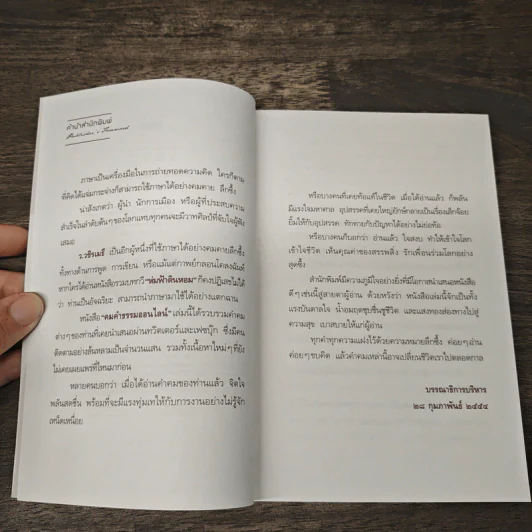 คำนำสำนักพิมพ์
Publisher's Foreword
ภาษาเป็นเครื่องมือในการถ่ายทอดความคิด ใครก็ตาม
ที่คิดได้แจ่มกระจ่างก็สามารถใช้ภาษาได้อย่างคมคาย ลึกซึ้ง
น่าสังเกตว่า ผู้นำ นักการเมือง หรือผู้ที่ประสบความ
สำเร็จในลำดับต้นๆของโลกแทบทุกคนจะมีวาทศิลป์ที่จับใจผู้ฟัง
เสมอ
ว.วชิรเมธี เป็นอีกผู้หนึ่งที่ใช้ภาษาได้อย่างคมคายลึกซึ้ง
ทั้งทางด้านการพูด การเขียน หรือแม้แต่การพยักกลอนโคลงฉันท์
หากใครได้อ่านหนังสือรวมบทกวี "ห่มฟ้าดินหอม" ก็คงปฏิเสธไม่ได้
ว่า ท่านเป็นอัจฉริยะ สามารถนำภาษามาใช้ได้อย่างแตกฉาน
หนังสือ "คมคำธรรมออนไลน์" เล่มนี้ได้รวบรวมคำคม
ต่างๆของท่านที่เคยนำเสนอผ่านทวิตเตอร์และเฟซบุ๊ก ซึ่งมีคน
ติดตามอย่างล้นหลามเป็นจำนวนแสน รวมทั้งเนื้อหาใหม่ๆที่ยัง
ไม่เคยเผยแพร่ที่ไหนมาก่อน
หลายคนบอกว่า เมื่อได้อ่านคำคมของท่านแล้ว จิตใจ
พลันสดชื่น พร้อมที่จะมีแรงทุ่มเทให้กับการงานอย่างไม่รู้จัก
เหน็ดเหนื่อย
หรือบางคนที่เคยท้อแท้ในชีวิต เมื่อได้อ่านแล้ว ก็พลัน
มีแรงใจมหาศาล อุปสรรคที่เคยใหญ่ยักษ์กลายเป็นเรื่องเล็กจ้อย
ยิ้มให้กับอุปสรรค ทักทายกับปัญหาได้อย่างไม่ย่อท้อ
หรือบางคนก็บอกว่า อ่านแล้ว ใจสงบ ทำให้เข้าใจโลก
เข้าใจชีวิต เห็นคุณค่าของสรรพสิ่ง รักเพื่อนร่วมโลกอย่าง
สุดซึ้ง
สำนักพิมพ์มีความภูมิใจอย่างยิ่งที่มีโอกาสนำเสนอหนังสือ
ดีๆเช่นนี้สู่สายตาผู้อ่าน ด้วยหวังว่า หนังสือเล่มนี้จักเป็นทั้ง
แรงบันดาลใจ น้ำอมฤตชุบชื่นชูชีวิต และแสงทองส่องทางไปสู่
ความสุข เบาสบายให้แก่ผู้อ่าน
ทุกคำทุกความแฝงไว้ด้วยความหมายลึกซึ้ง ค่อยๆอ่าน
ค่อยๆขบคิด แล้วคำคมเหล่านี้อาจเปลี่ยนชีวิตเราไปตลอดกาล
บรรณาธิการบริหาร
๒๘ กุมภาพันธ์ ๒๕๕๔